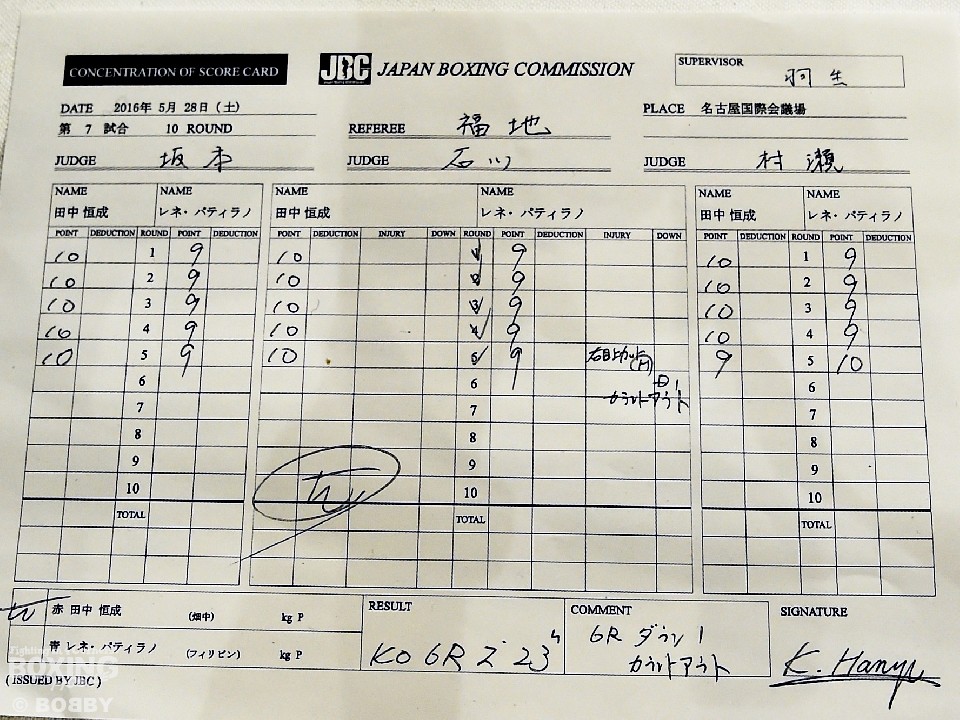 CONCENTRATION OF SCORE CARD
JBC JAPAN BOXING COMMISSION
SUPERVISOR 羽生
DATE 2016年 5月 28日(土)
PLACE 名古屋国際会議場
第 7 試合 10 ROUND
REFEREE 福地
JUDGE 坂本
JUDGE 石川
JUDGE 村瀬
NAME NAME NAME NAME NAME NAME
田中 恒成 レネ・パティラノ 田中 恒成 レネ・パティラノ 田中 恒成 レネ・パティラノ
POINT DEDUCTION ROUND POINT DEDUCTION POINT DEDUCTION INJURY DOWN ROUND POINT DEDUCTION INJURY DOWN POINT DEDUCTION ROUND POINT DEDUCTION
10 1 9 10 1 9 10 1 9
10 2 9 10 2 9 10 2 9
10 3 9 10 3 9 10 3 9
10 4 9 10 4 9 10 4 9
10 5 9 10 5 9 右目上カット 9 5 10
6 6 6
カウントアウト
7 7 7
8 8 8
9 9 9
10 10 10
TOTAL TOTAL TOTAL
赤 田中 恒成 (畑中) kg P
青 レネ・パティラノ (フィリピン) kg P
RESULT
KO 6R 2' 23"
COMMENT
6R ダウン 1
カウントアウト
SIGNATURE
K. Hanyu
(ISSUED BY JBC)
BOXING
© BOBBY